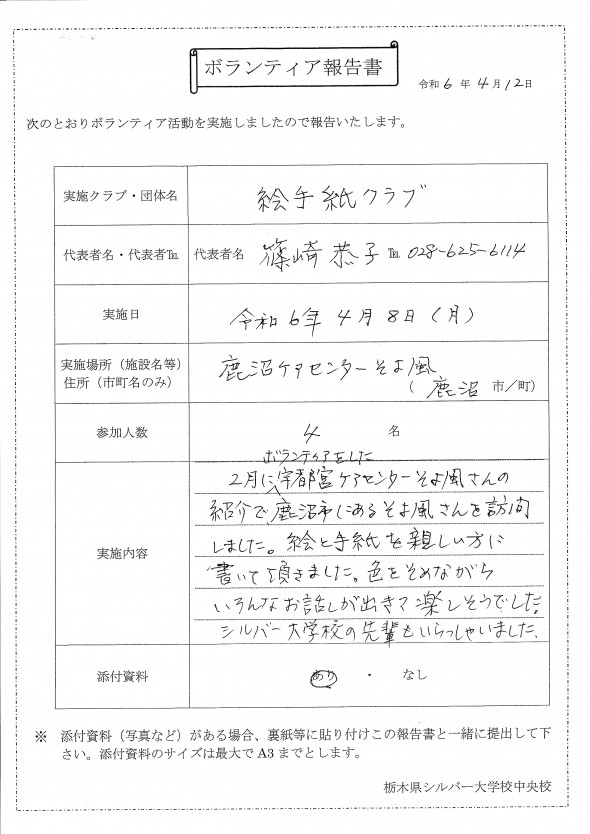 ボランティア報告書
令和 6 年 4 月 12 日
次のとおりボランティア活動を実施しましたので報告いたします。
実施クラブ・団体名 絵手紙クラブ
代表者名・代表者℡ 代表者名 篠崎 恭子 ℡ 028-625-6114
実施日 令和6年4月8日(月)
実施場所(施設名等) 鹿沼ケアセンターそよ風
住所(市町名のみ) (鹿沼 市/町)
参加人数 4 名
ボランティアをした
2月に宇都宮ケアセンターそよ風さんの
紹介で、鹿沼市にあるそよ風さんを訪問
しました。絵と手紙を親しい方に
実施内容
書いて頂きました。色をそめながら
いろんなお話しが出きて楽しそうでした。
シルバー大学校の先輩もいらっしゃいました、
添付資料 あり ・ なし
※ 添付資料(写真など)がある場合、裏紙等に貼り付けこの報告書と一緒に提出して下
さい。添付資料のサイズは最大でA3までとします。
栃木県シルバー大学校中央校